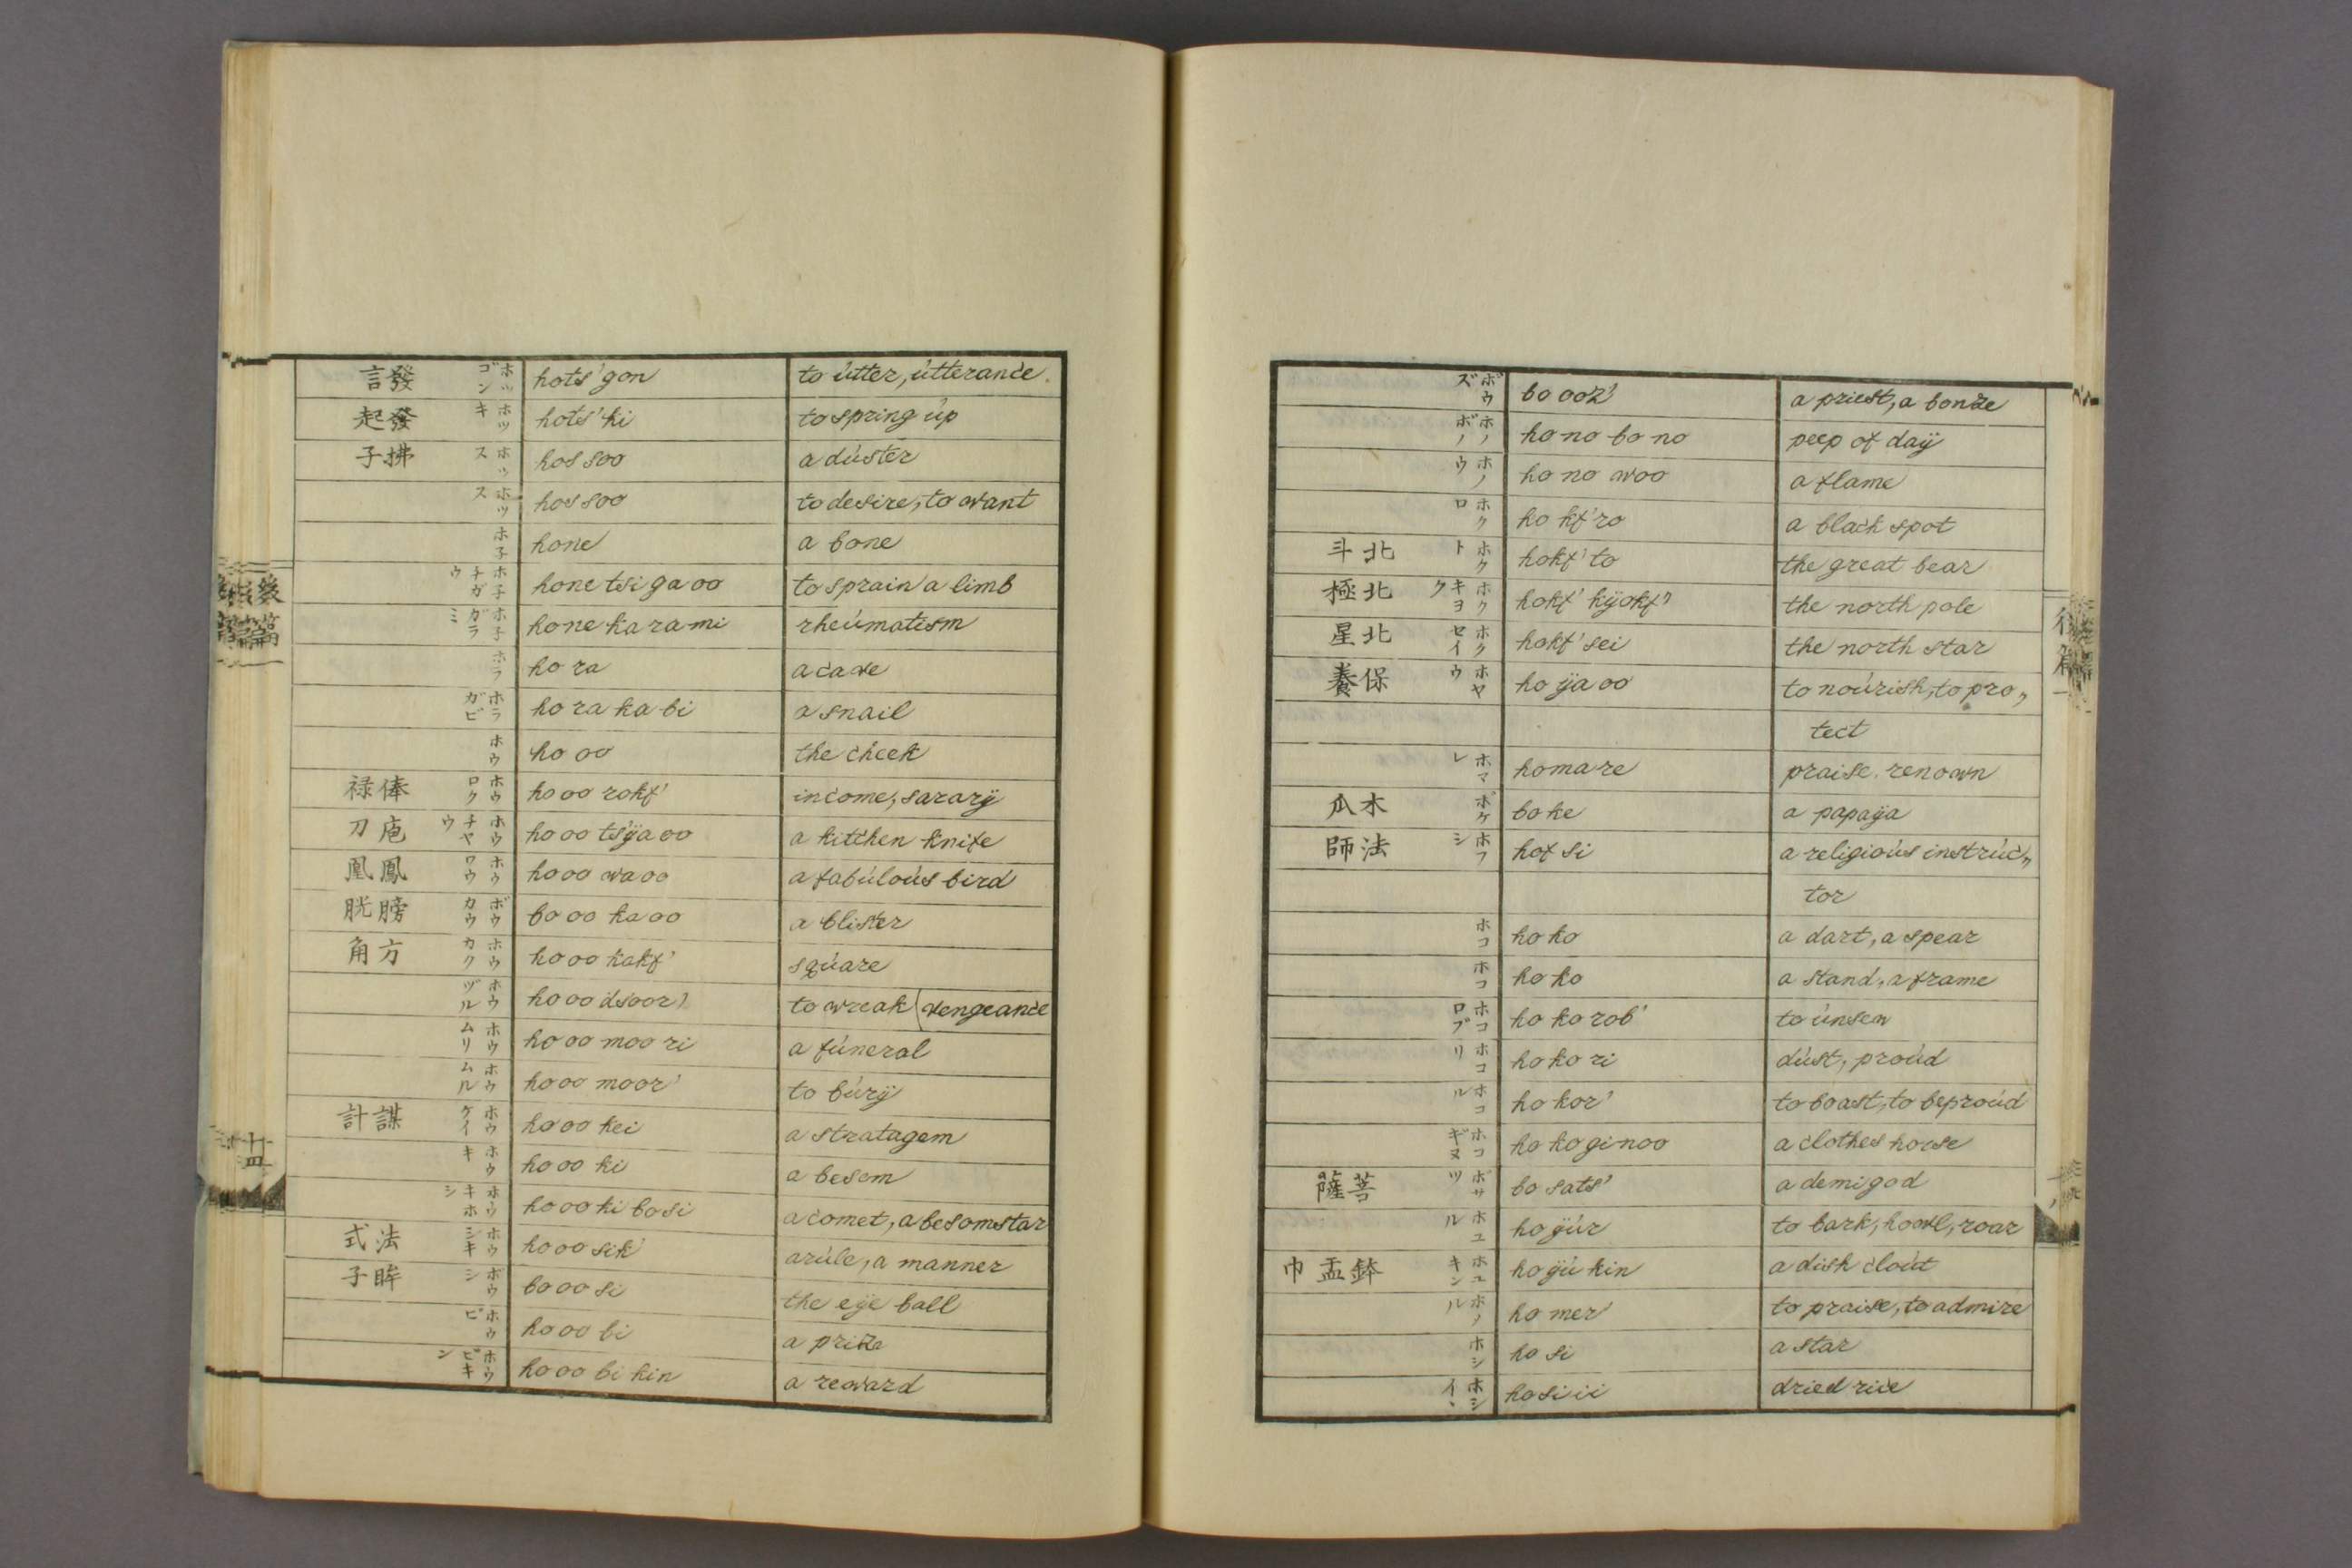 言發 ホッゴン hots'gon to útter, útterance.
起發 ホツキ hots'ki to spring úp
子拂 ホッス hossoo a dúster
ホツス hossoo to desire, to want
ホ子 hone a bone
ホ子チガウ hone tsi ga oo to sprain a limb
ホ子ガラミ hone ka ra mi rheúmatism
ホラ ho ra a cave
ホラガビ ho ra ka bi a snail
ホウ ho oo the cheek
禄俸 ホウロク ho oo rokf' income, sararÿ
刀庖 ホウチヤウ ho oo tsÿa oo a kitchen knife
凰鳳 ホウワウ ho oo wa oo a fabúloús bird
胱膀 ボウカウ bo oo ka oo a blister
角方 ホウカク ho oo kakf' sqúare
ホウヅル ho oo dsoor' to wreak (vengeance
ホウムリ ho oo moo ri a fúneral
ホウムル ho oo moor' to búrÿ
計謀 ホウケイ ho oo kei a stratagem
ホウキ ho oo ki a besem
ホウキホシ ho oo ki bosi a comet, a besomstar
式法 ホウシキ ho oo sik' a rúle, a manner
子眸 ボウシ bo oo si the eÿe ball
ホウビ ho oo bi a prize
ホウビキン ho oo bi kin a reward
後篇
廿四
ボウズ bo ooz' a priest, a bonze
ホノボノ ho no bo no peep of daÿ
ホノウ ho no woo a flame
ホクロ ho kf'ro a black spot
斗北 ホクト hokf'to the great bear
極北 ホクキヨク hokf' kÿokf' the north pole
星北 ホクセイ hokf'sei the north star
養保 ホヤウ ho ÿa oo to noúrish, to pro„
tect
ホマレ homare praise. renown
瓜木 ボケ bo ke a papaÿa
師法 ホフシ hof si a religioús instrúc„
tor
ホコ ho ko a dart, a spear
ホコ ho ko a stand, a frame
ホコロブ ho ko rob' to únsew
ホコリ ho ko ri dúst, proúd
ホコル ho kor' to boast, to be proúd
ホコギヌ ho ko ginoo a clothes horse
薩菩 ボサツ bo sats' a demigod
ホユル ho ÿúr to bark, howl, roar
巾盂鉢 ホユキン ho ÿú kin a dish cloút
ホノル ho mer' to praise, to admire
ホシ ho si a star
ホシイヽ hosi ii dried rice